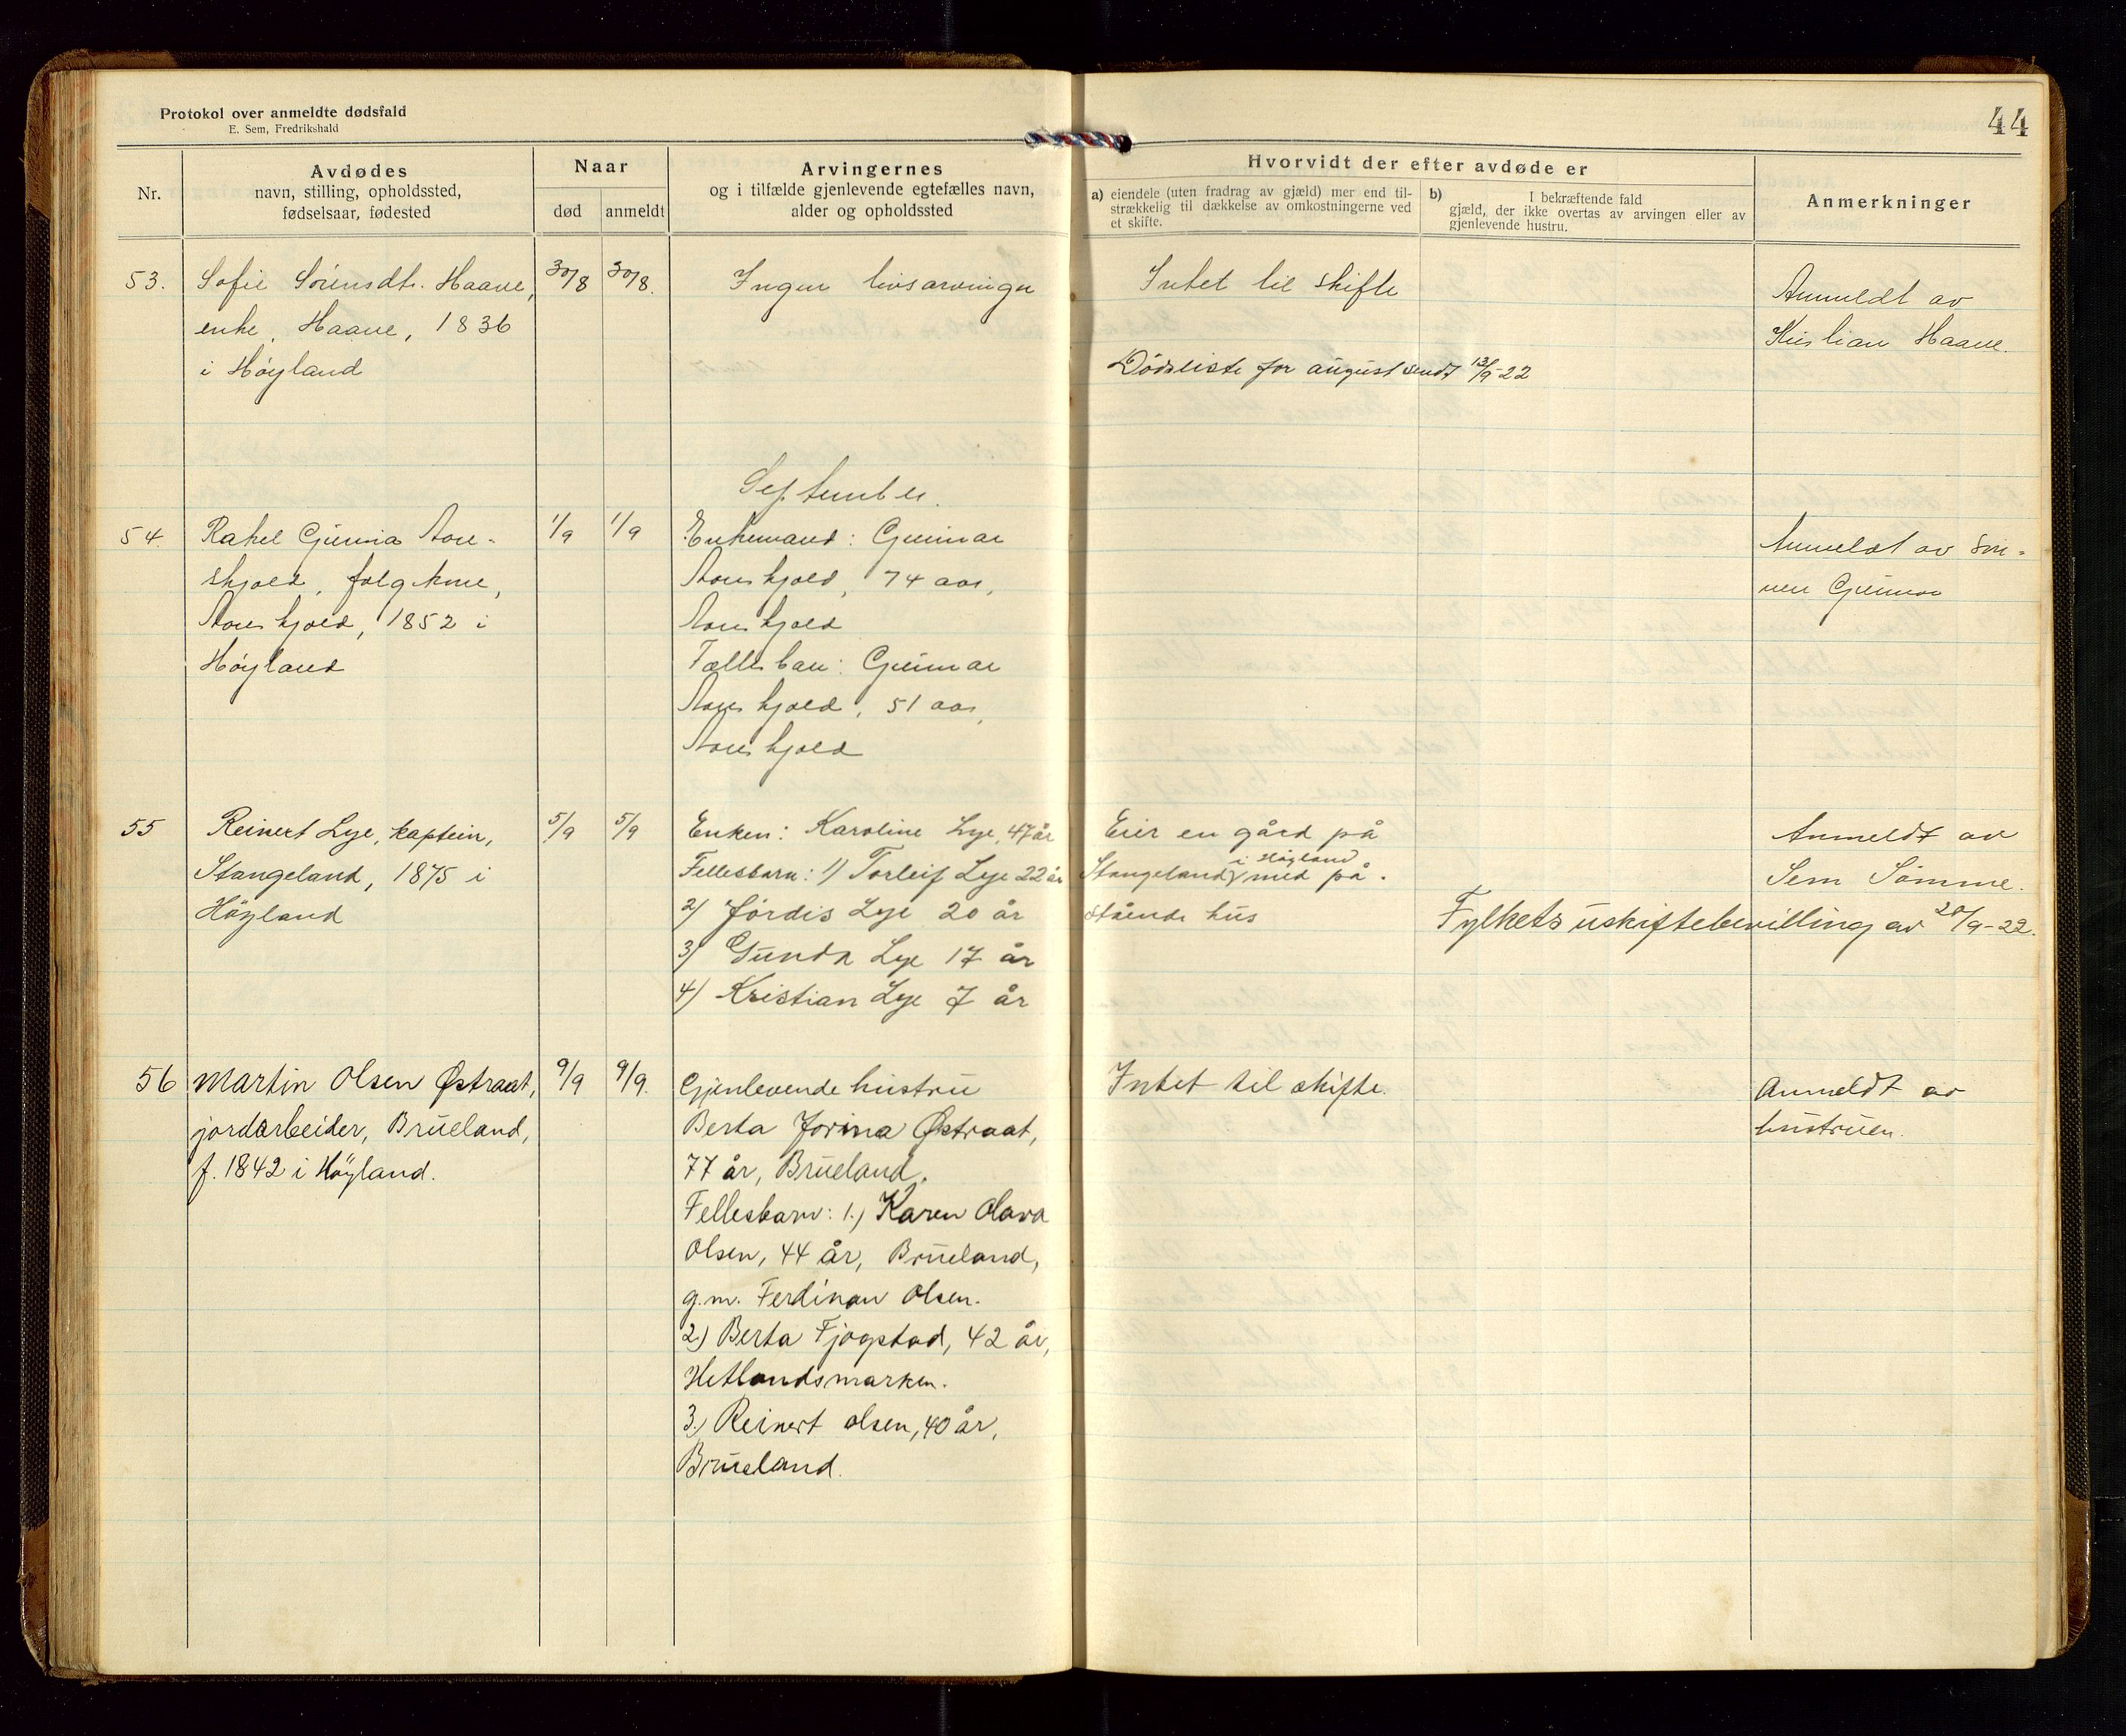 Protokol over anmeldte dødsfald
E. Sem, Fredrikshald
44
Nr.
Avdødes
navn, stilling, opholdssted,
fødselsaar, fødested
Naar
død
anmeldt
Arvingernes
og i tilfælde gjenlevende egtefælles navn,
alder og opholdssted
Hvorvidt der efter avdøde er
a) eiendele (uten fradrag av gjæld) mer end til-
strækkelig til dækkelse av omkostningerne ved
et skifte.
b) I bekræftende fald
gjæld, der ikke overtas av arvingen eller av
gjenlevende hustru.
Anmerkninger
53.
Sofie Sørensdtr. Haave,
enke, Haave, 1836
i Høyland
30/8
30/8.
Ingen livsarvinger
Intet til skifte
Dødsliste for august sendt 13/9-22
Anmeldt av
Kristian Haave.
September.
54.
Rakel Gurina Aare-
skjold, følgekone,
Aareskjold, 1852 i
Høyland
1/9
1/9
Enkemand: Gunnar
Aareskjold, 74 aar,
Aareskjold
Fællesbarn: Gunnar
Aareskjold, 51 aar,
Aareskjold
Anmeldt av søn-
nen Gunnar
55
Reinert Lye, kaptein,
Stangeland, 1875 i
Høyland
5/9
5/9
Enken: Karoline Lye, 47 år
Fellesbarn: 1) Torleif Lye 22 år
2) Jórdis Lye 20 år
3) Gunda Lye 17 år
4) Kristian Lye 7 år
Eier en gård på
i Høyland
Stangeland med på-
stående hus
Fylkets uskiftebevilling av 20/9-22.
Anmeldt av
Sem Sømme.
56
Martin Olsen Østraat,
jordarbeider, Brueland,
f. 1842 i Høyland.
9/9
9/9.
Gjenlevende hustru
Berta Jorina Østraat,
77 år, Brueland.
Fellesbarn: 1.) Karen Olava
Olsen, 44 år, Brueland,
g.m. Ferdinan Olsen.
2) Berta Fjogstad, 42 år,
Hetlandsmarken.
3.) Reinert Olsen, 40 år,
Brueland.
Intet til skifte.
Anmeldt av
hustruen.